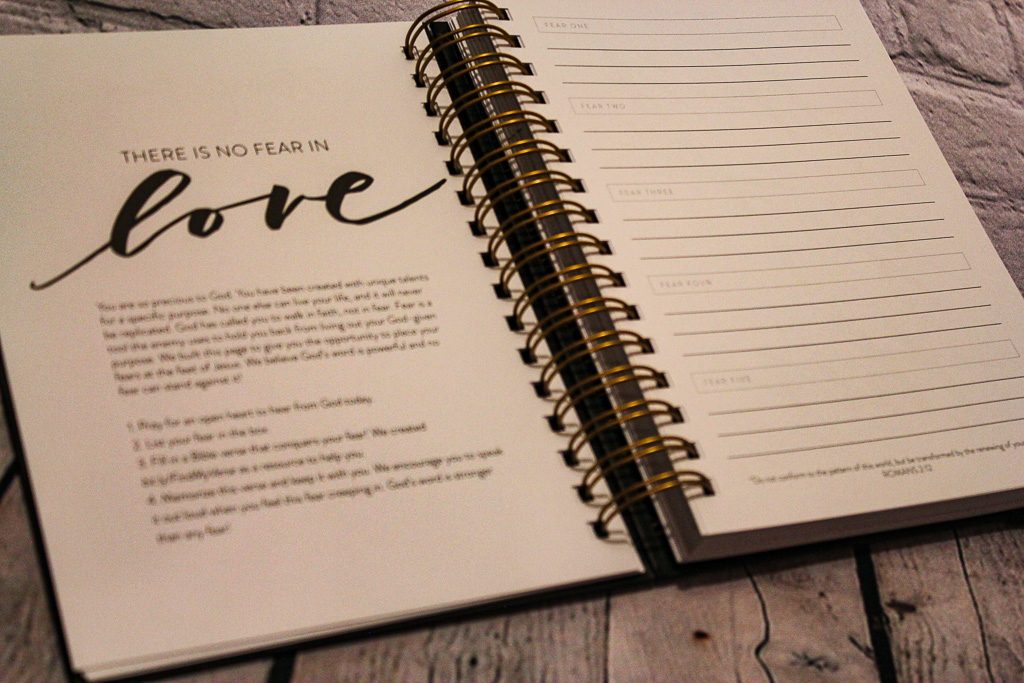 THERE IS NO FEAR IN
love
You are so precious to God. You have been created with unique talents
for a specific purpose. No one else can live your life, and it will never
be replicated. God has called you to walk in faith, not in fear. Fear is a
tool the enemy uses to hold you back from living out your God-given
purpose. We built this page to give you the opportunity to place your
fears at the feet of Jesus. We believe God's word is powerful and no
fear can stand against it!
1. Pray for an open heart to hear from God today.
2. List your fear in the box.
3. Fill in a Bible verse that conquers your fear! We created
as a resource to help you.
4. Memorize this verse and keep it with you. We encourage you to speak
it out loud when you feel this fear creeping in. God's word is stronger
than any fear!
FEAR ONE
FEAR TWO
FEAR THREE
FEAR FOUR
FEAR FIVE
"Do not conform to the pattern of this world, but be transformed by the renewing of your
ROMANS 12:2